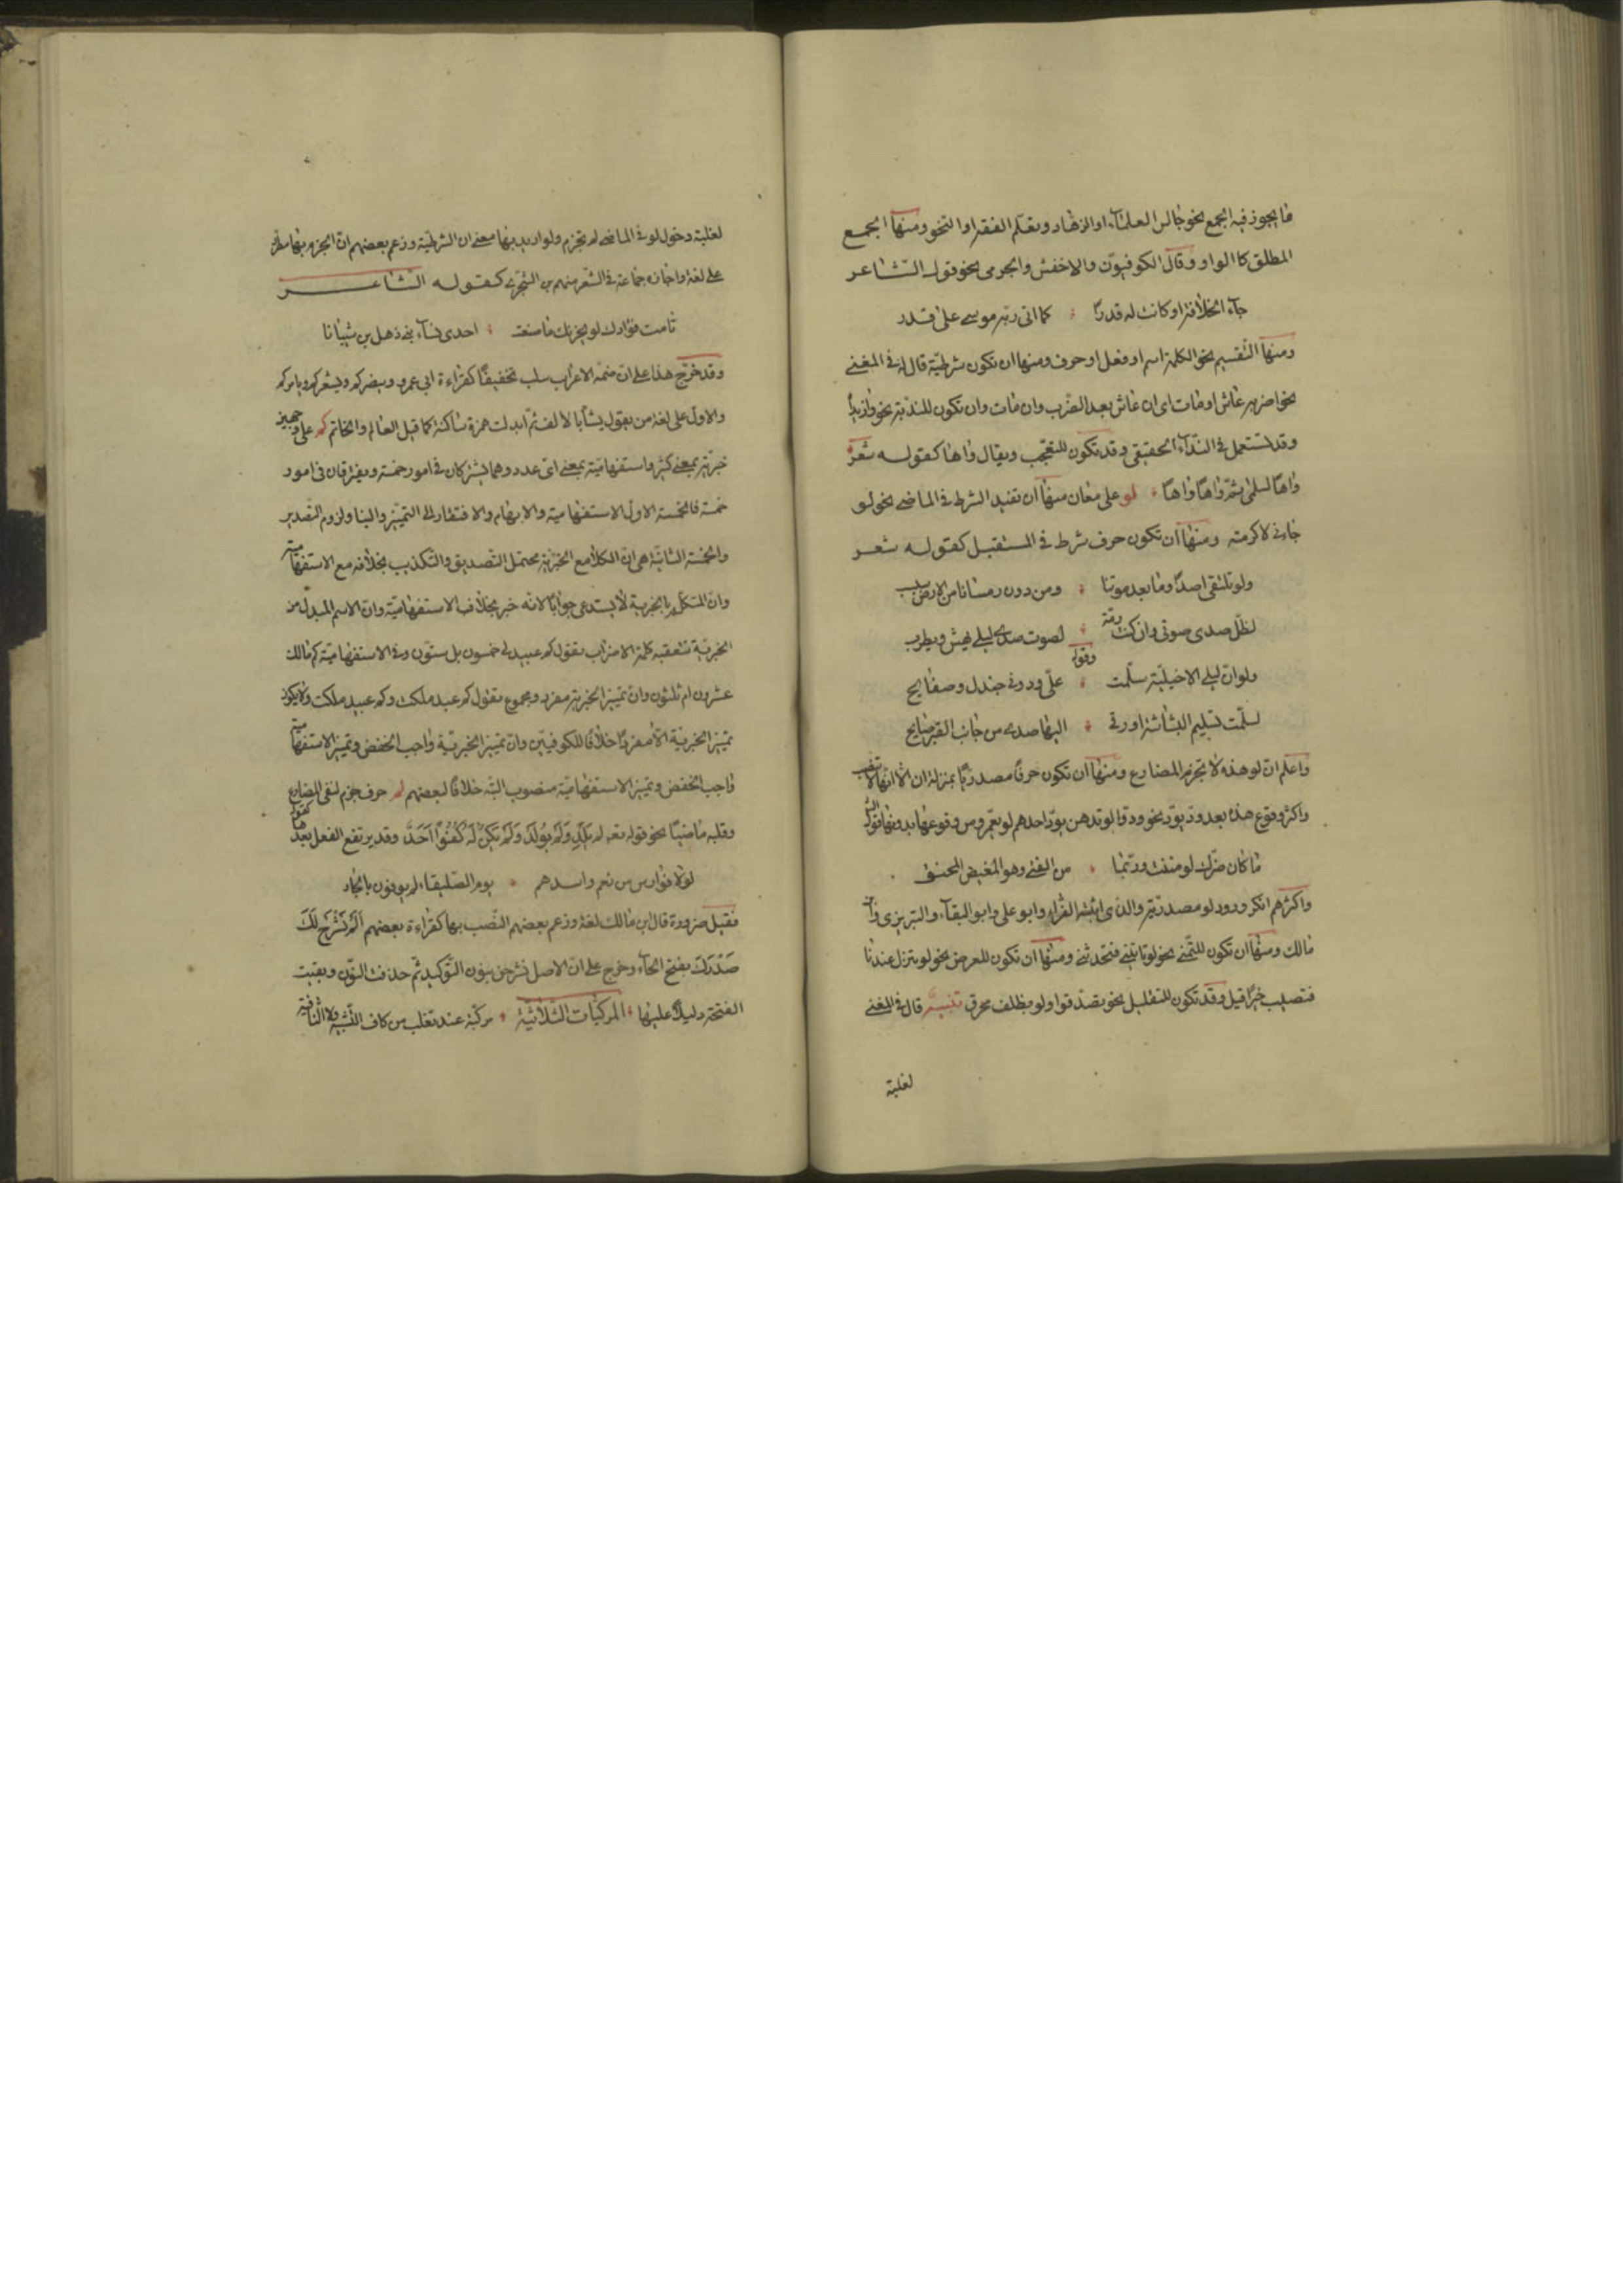 ما يجوز فيه الجمع نحو جالس العلماء او الزهاد وتعلم الفقه او النحو ومنها الجمع
المطلق كالواو وقال الكوفيون والاخفش والجرمي نحو قول الشاعر
جاء الخلافة او كانت له قدرا كما اتى ربه موسى على قدر
ومنها التقسيم نحو الكلمة اسم او فعل او حرف ومنها ان تكون شرطية قاله في المغني
نحو اضربه عاش او مات اى ان عاش بعد الضرب وان مات وان تكون للندبة نحو وازيدا
وقد تستعمل في النداء الحقيقي وقد تكون للتعجب ويقال واها كقوله شعر
واها لسلمى ثم واها واها لو على معان منها ان تفيد الشرط في الماضي نحو لو
جاءني لاكرمته ومنها ان تكون حرف شرط في المستقبل كقوله شعر
ولو تلتقي اصداؤنا بعد موتنا ومن دون رمسانا من الارض سبسب
لظل صدى صوتي وان كنت رمة لصوت صدى ليلى يهش ويطرب
وقوله
ولو ان ليلى الاخيلية سلمت على ودوني جندل وصفايح
لسلمت تسليم البشاشة اوزقى اليها صدى من جانب القبر صايح
واعلم ان لو هذه لا تجزم المضارع ومنها ان تكون حرفا مصدريا بمنزلة ان الا انها لا تنصب
واكثر وقوع هذه بعد ود يود نحو ودوا لو تدهن يود احدهم لو يعمر ومن وقوعها بدونها قوله
ما كان ضرك لو مننت وربما من الفتى وهو المغيض المحنق
واكثرهم انكر ورود لو مصدرية والذي اثبته الفراء وابو على وابو البقاء والتبريزي وابن
مالك ومنها ان تكون للتمنى نحو لو تاتيني فتحدثني ومنها ان تكون للعرض نحو لو تنزل عندنا
فتصيب خيرا قيل وقد تكون للتقليل نحو تصدقوا ولو بظلف محرق تنبيه قال في المغني
لغلبة
لغلبة دخول لو في الماضي لم تجزم ولو اريد بها معنى ان الشرطية وزعم بعضهم ان الجزم بها مطرد
على لغة واجازه جماعة في الشعر منهم بن الشجرى كقوله الشاعر
تامت فؤادك لو يحزنك ما صنعت احدى نساء بني ذهل بن شيبانا
وقد خرج هذا على ان ضمة الاعراب سلبت تخفيفا كقراءة ابي عمرو وينصركم ويشعركم ويامركم
والاول على لغة من يقول يشا بالالف ثم ابدلت همزة ساكنة كما قيل العالم والخاتم كم على وجهين
خبرية بمعنى كثير واستفهامية بمعنى اى عدد وهما يشتركان في امور خمسة ويفترقان في امور
خمسة فالخمسة الاول الاستفهامية والابهام والافتقار الى التمييز والبنا ولزوم التصدير
والخمسة الثانية هي ان الكلام مع الخبرية محتمل التصديق والتكذيب بخلافه مع الاستفهامية
وان المتكلم بالخبرية لا يستدعى جوابا لانه خبر بخلاف الاستفهامية وان الاسم المبدل من
الخبرية تتعقبه كلمة الاضراب تقول كم عبيد لي خمسون بل ستون وفي الاستفهامية كم مالك
عشرون ام ثلثون وان تمييز الخبرية مفرد ومجموع تقول كم عبد ملكت وكم عبيد ملكت ولا يكون
تمييز الخبرية الا مفردا خلافا للكوفيين وان تمييز الخبرية واجب الخفض وتمييز الاستفهامية
واجب الخفض وتمييز الاستفهامية منصوب البتة خلافا لبعضهم لم حرف جزم لنفى المضارع
وقلبه ماضيا نحو قوله تعه لم يلد ولم يولد ولم يكن له كفوا احد وقد يرتفع الفعل بعدها كقوله
لولا فوارس من نعم واسدهم يوم الصليفاء لم يوفون بالجار
فقيل ضرورة قال بن مالك لغة وزعم بعضهم النصب بها كقراءة بعضهم الم نشرح لك
صدرك بفتح الحاء وخرج على ان الاصل نشرحن بنون التوكيد ثم حذفت النون وبقيت
الفتحة دليلا عليها المركبات الثلاثية مركبة عند ثعلب من كاف التشبيه ولا النافية